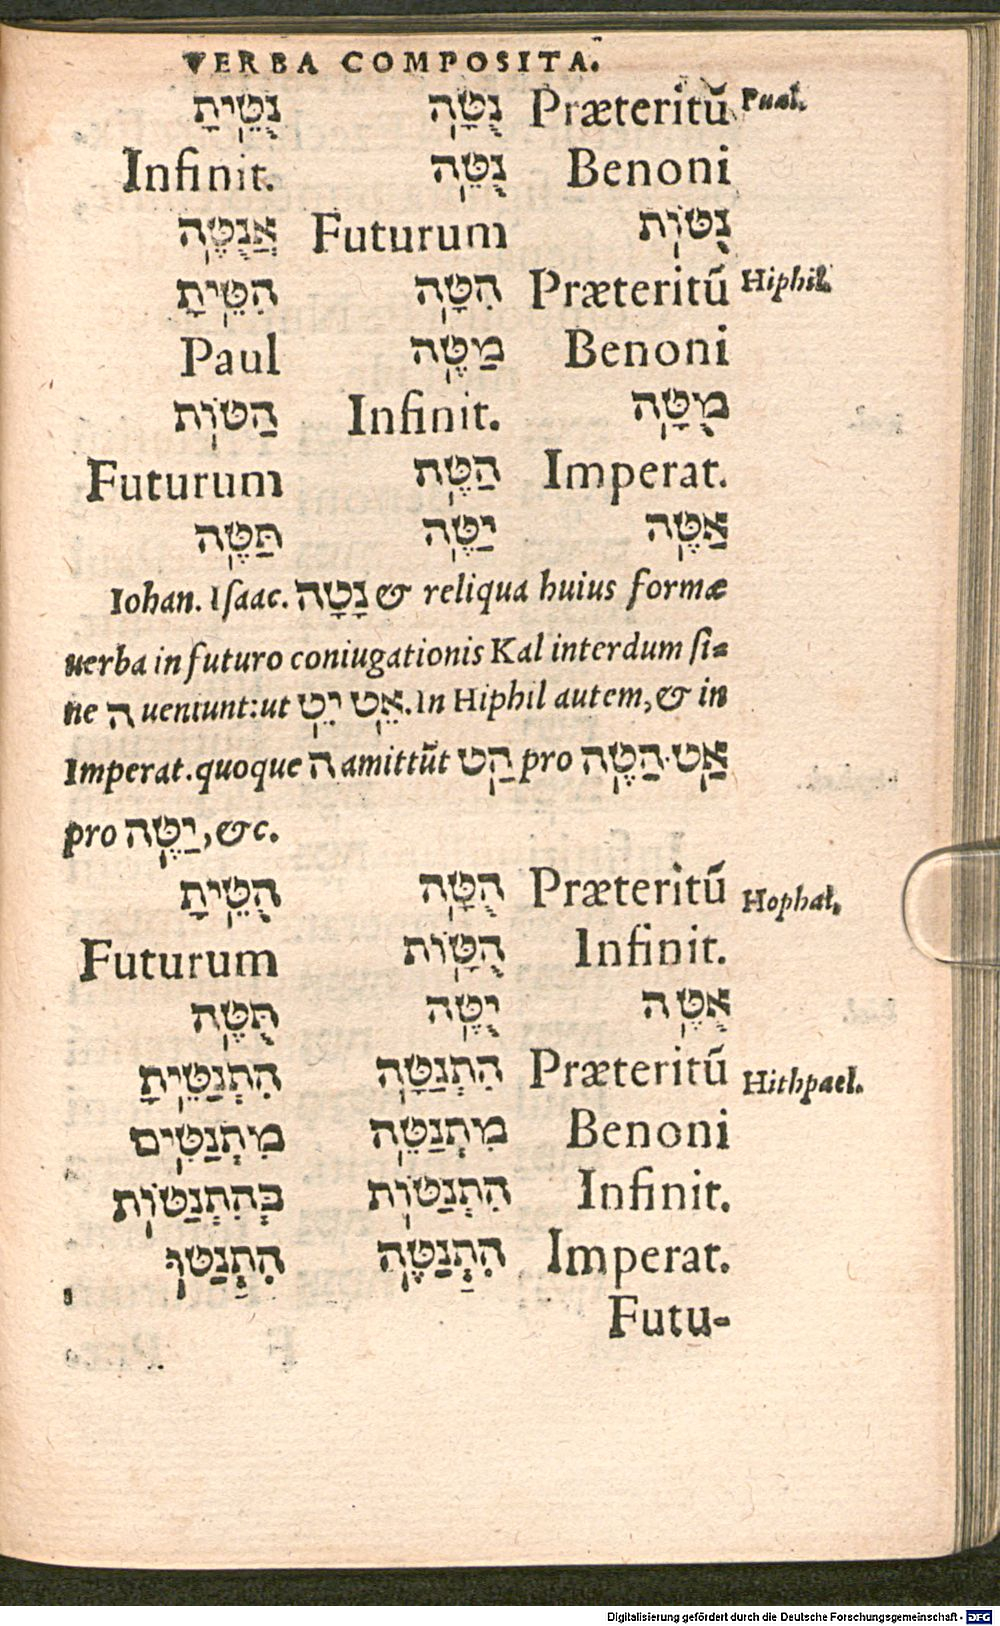 VERBA COMPOSITA.
Præteritũ נֻטָּה נֻטֵּיתָ Pual.
Benoni נֻטֶּה Infinit.
נֻטּוֹת Futurum אֲנֻטֶּה
Præteritũ הִטָּה הִטֵּיתָ Hiphil.
Benoni מַטֶּה Paul
מֻטָּה Infinit. הַטּוֹת
Imperat. הַטֵּה Futurum
אַטֶּה יַטֶּה תַּטֶּה
Iohan. Isaac. נָטָה & reliqua huius formæ
uerba in futuro coniugationis Kal interdum si=
ne ה ueniunt: ut אֵט יֵט. In Hiphil autem, & in
Imperat. quoque ה amittũt הַט pro הַטֶּה. אַט
pro יַטֶּה, &c.
Præteritũ הֻטָּה הֻטֵּיתָ Hophal.
Infinit. הֻטּוֹת Futurum
אֻטֶּה יֻטֶּה תֻּטֶּה
Præteritũ הִתְנַטָּה הִתְנַטֵּיתָ Hithpael.
Benoni מִתְנַטֵּה מִתְנַטִּים
Infinit. הִתְנַטּוֹת בְּהִתְנַטּוֹת
Imperat. הִתְנַטֶּה הִתְנַטּוּ
Futu-
Digitalisierung gefördert durch die Deutsche Forschungsgemeinschaft - DFG